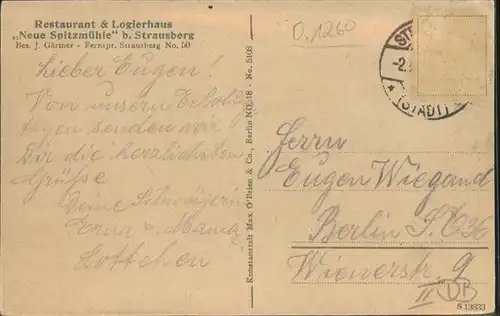 Restaurant & Logierhaus
„Neue Spitzmühle" b. Strausberg
Bes. J. Gärtner - Fernspr. Strausberg No. 50
Lieber Eugen!
Von unsern Erholungs-
tagen senden wir
Dir die herzlichsten
Grüße
Deine Schwägerin
Erna
Lottchen
Kunstanstalt Max O'Brien & Co., Berlin NO. 18 - No. 5168
O, 1260
(STADT)
Herrn
Eugen Wiegand
Berlin S.O. 36
Wienerstr. 9
II
S 13633